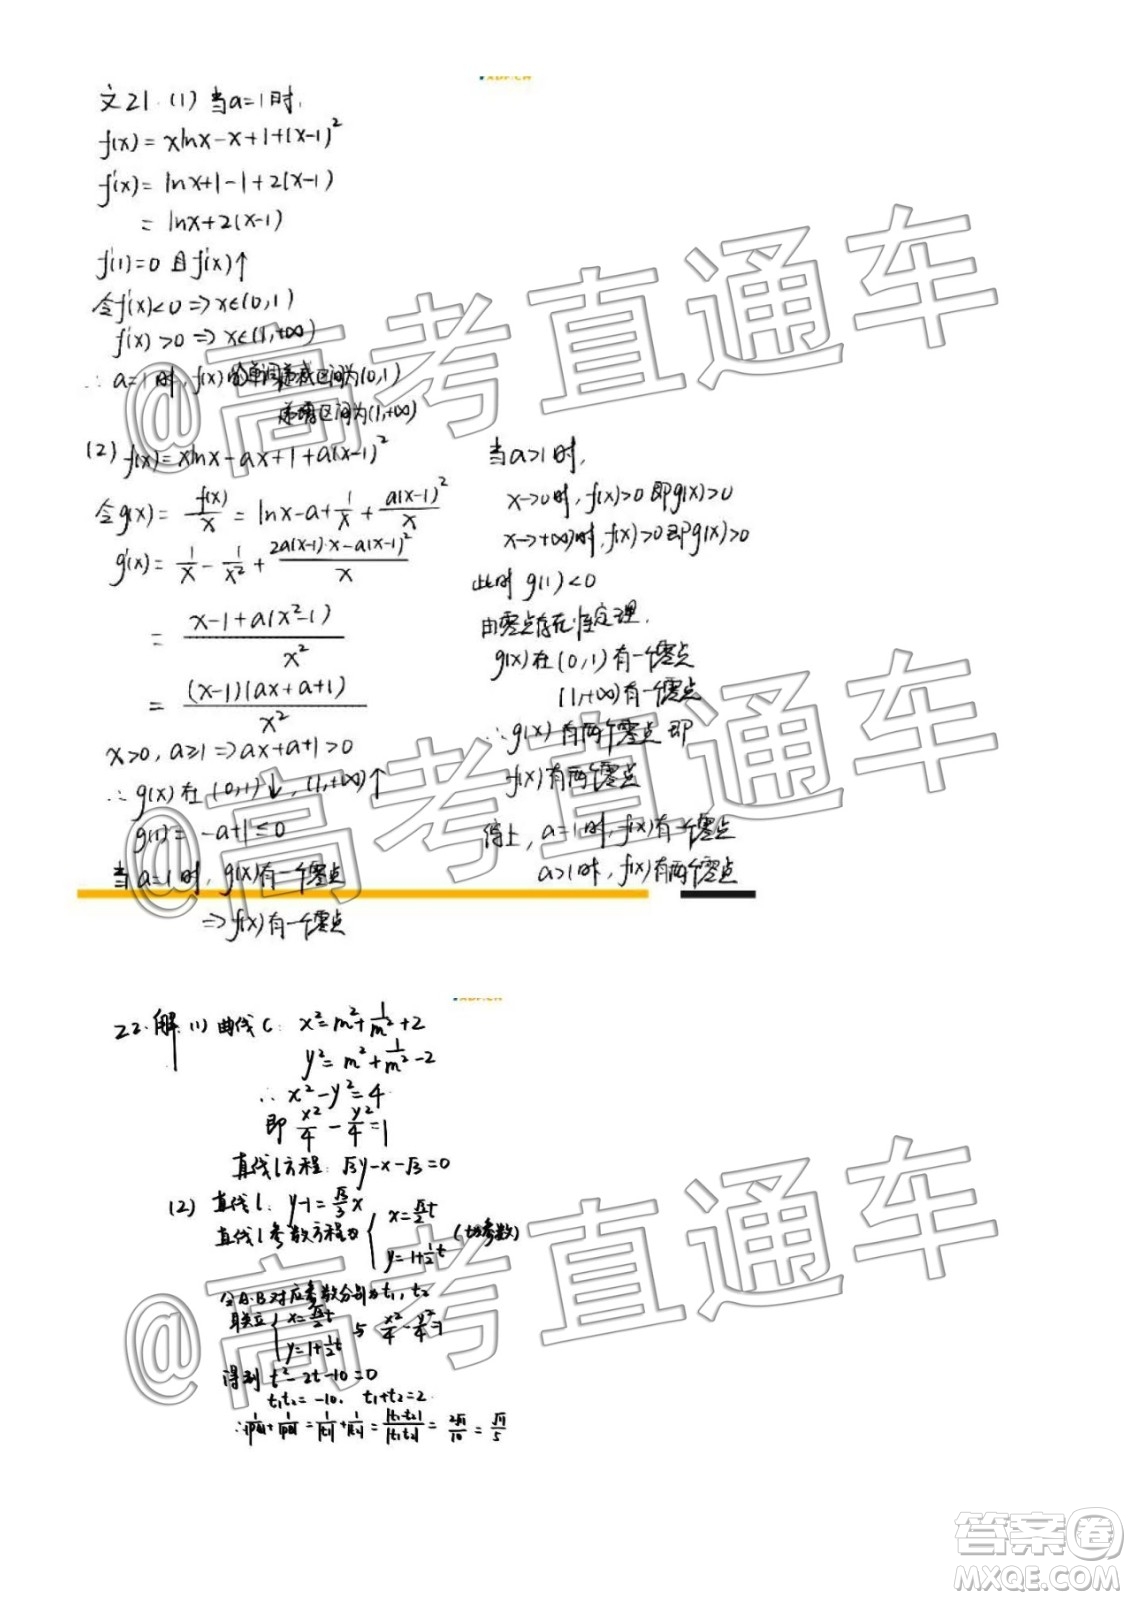 文21.(1)当a=1时,
f(x)=xlnx-x+1+(x-1)²
f'(x)=lnx+1-1+2(x-1)
=lnx+2(x-1)
f'(1)=0且f'(x)↑
令f'(x)<0⇒x∈(0,1)
f'(x)>0⇒x∈(1,+∞)
∴a=1时,f(x)的单调递减区间为(0,1)
递增区间为(1,+∞)
(2)f(x)=xlnx-ax+1+a(x-1)²
令g(x)=f(x)/x=lnx-a+1/x+a(x-1)²/x
g'(x)=1/x-1/x²+(2a(x-1)·x-a(x-1)²)/x
=(x-1+a(x²-1))/x²
=((x-1)(ax+a+1))/x²
x>0,a≥1⇒ax+a+1>0
∴g(x)在(0,1)↓,(1,+∞)↑
g(1)=-a+1≤0
当a=1时,g(x)有一个零点
⇒f(x)有一个零点
当a>1时,
x→0时,f(x)>0即g(x)>0
x→+∞时,f(x)>0即g(x)>0
此时g(1)<0
由零点存在性定理,
g(x)在(0,1)有一个零点
(1,+∞)有一个零点
∴g(x)有两个零点即
f(x)有两个零点
综上,a=1时,f(x)有一个零点
a>1时,f(x)有两个零点
22.解(1)曲线C:x²=m²+1/m²+2
y²=m²+1/m²-2
∴x²-y²=4
即x²/4-y²/4=1
直线l方程:√3y-x-√3=0
(2)直线l:y-1=√3/3x
直线l参数方程为{x=√3/2t
y=1+1/2t(t为参数)
令A,B对应参数分别为t₁,t₂
联立{x=√3/2t
y=1+1/2t与x²/4-y²/4=1
得到t²-2t-10=0
t₁t₂=-10,t₁+t₂=2
∴1/|PA|+1/|PB|=1/|t₁|+1/|t₂|=|t₁-t₂|/|t₁t₂|=2√11/10=√11/5
@高考直通车
@高考直通车
@高考直通车
答案卷
MXQE.COM